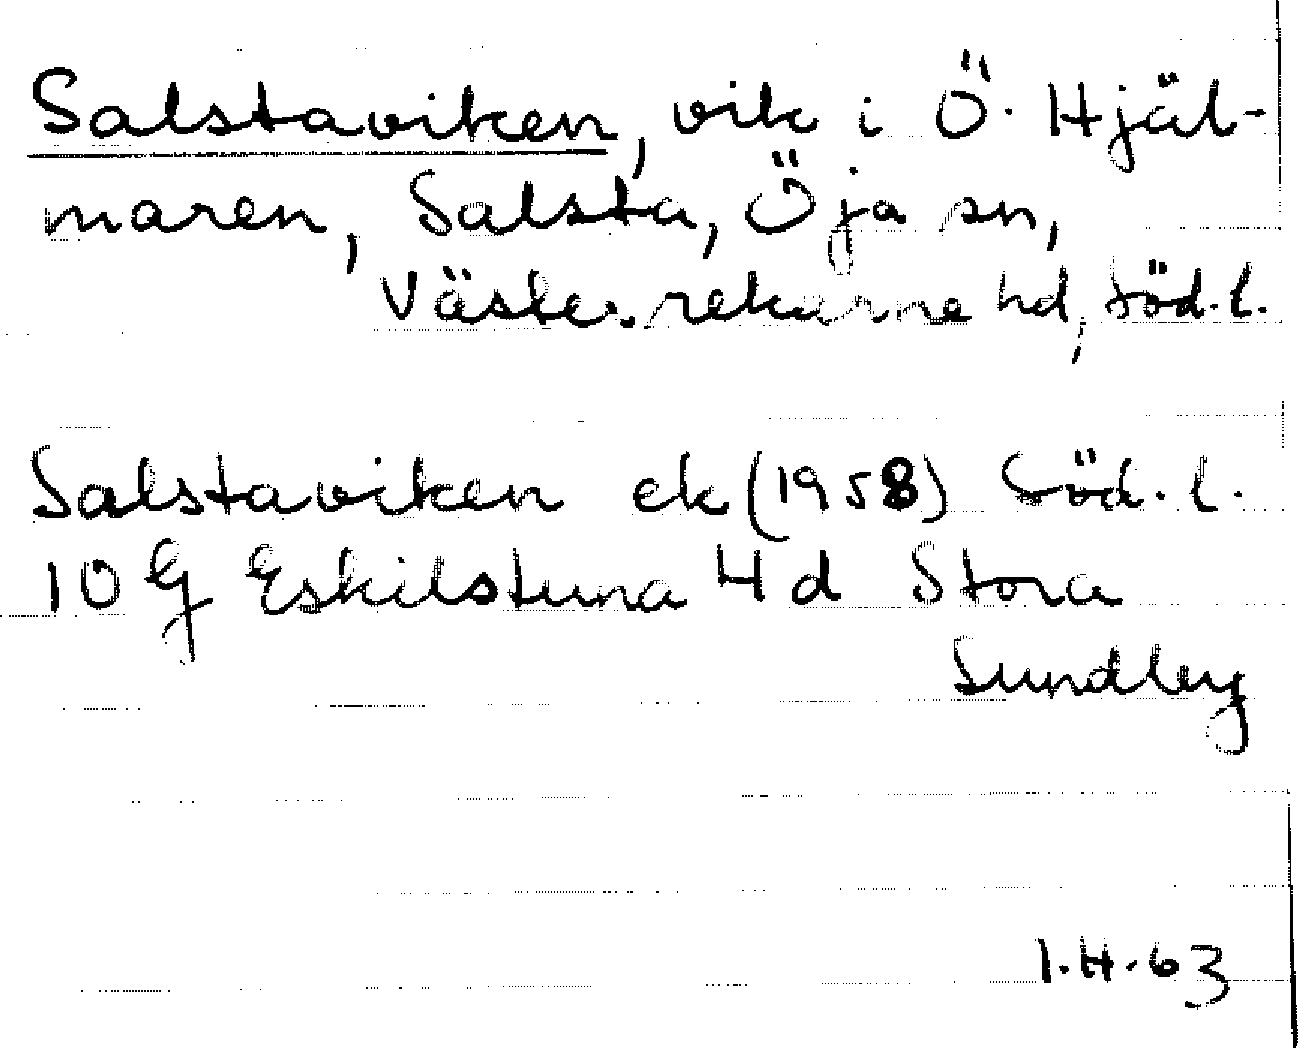 Salstaviken, vik i Ö. Hjäl-
maren, Salsta, Öja sn,
Västerrekarne hd, Söd. l.
Salstaviken ek (1958) Söd. l.
10 G Eskilstuna 4 d Stora
Sundby
1.H.63